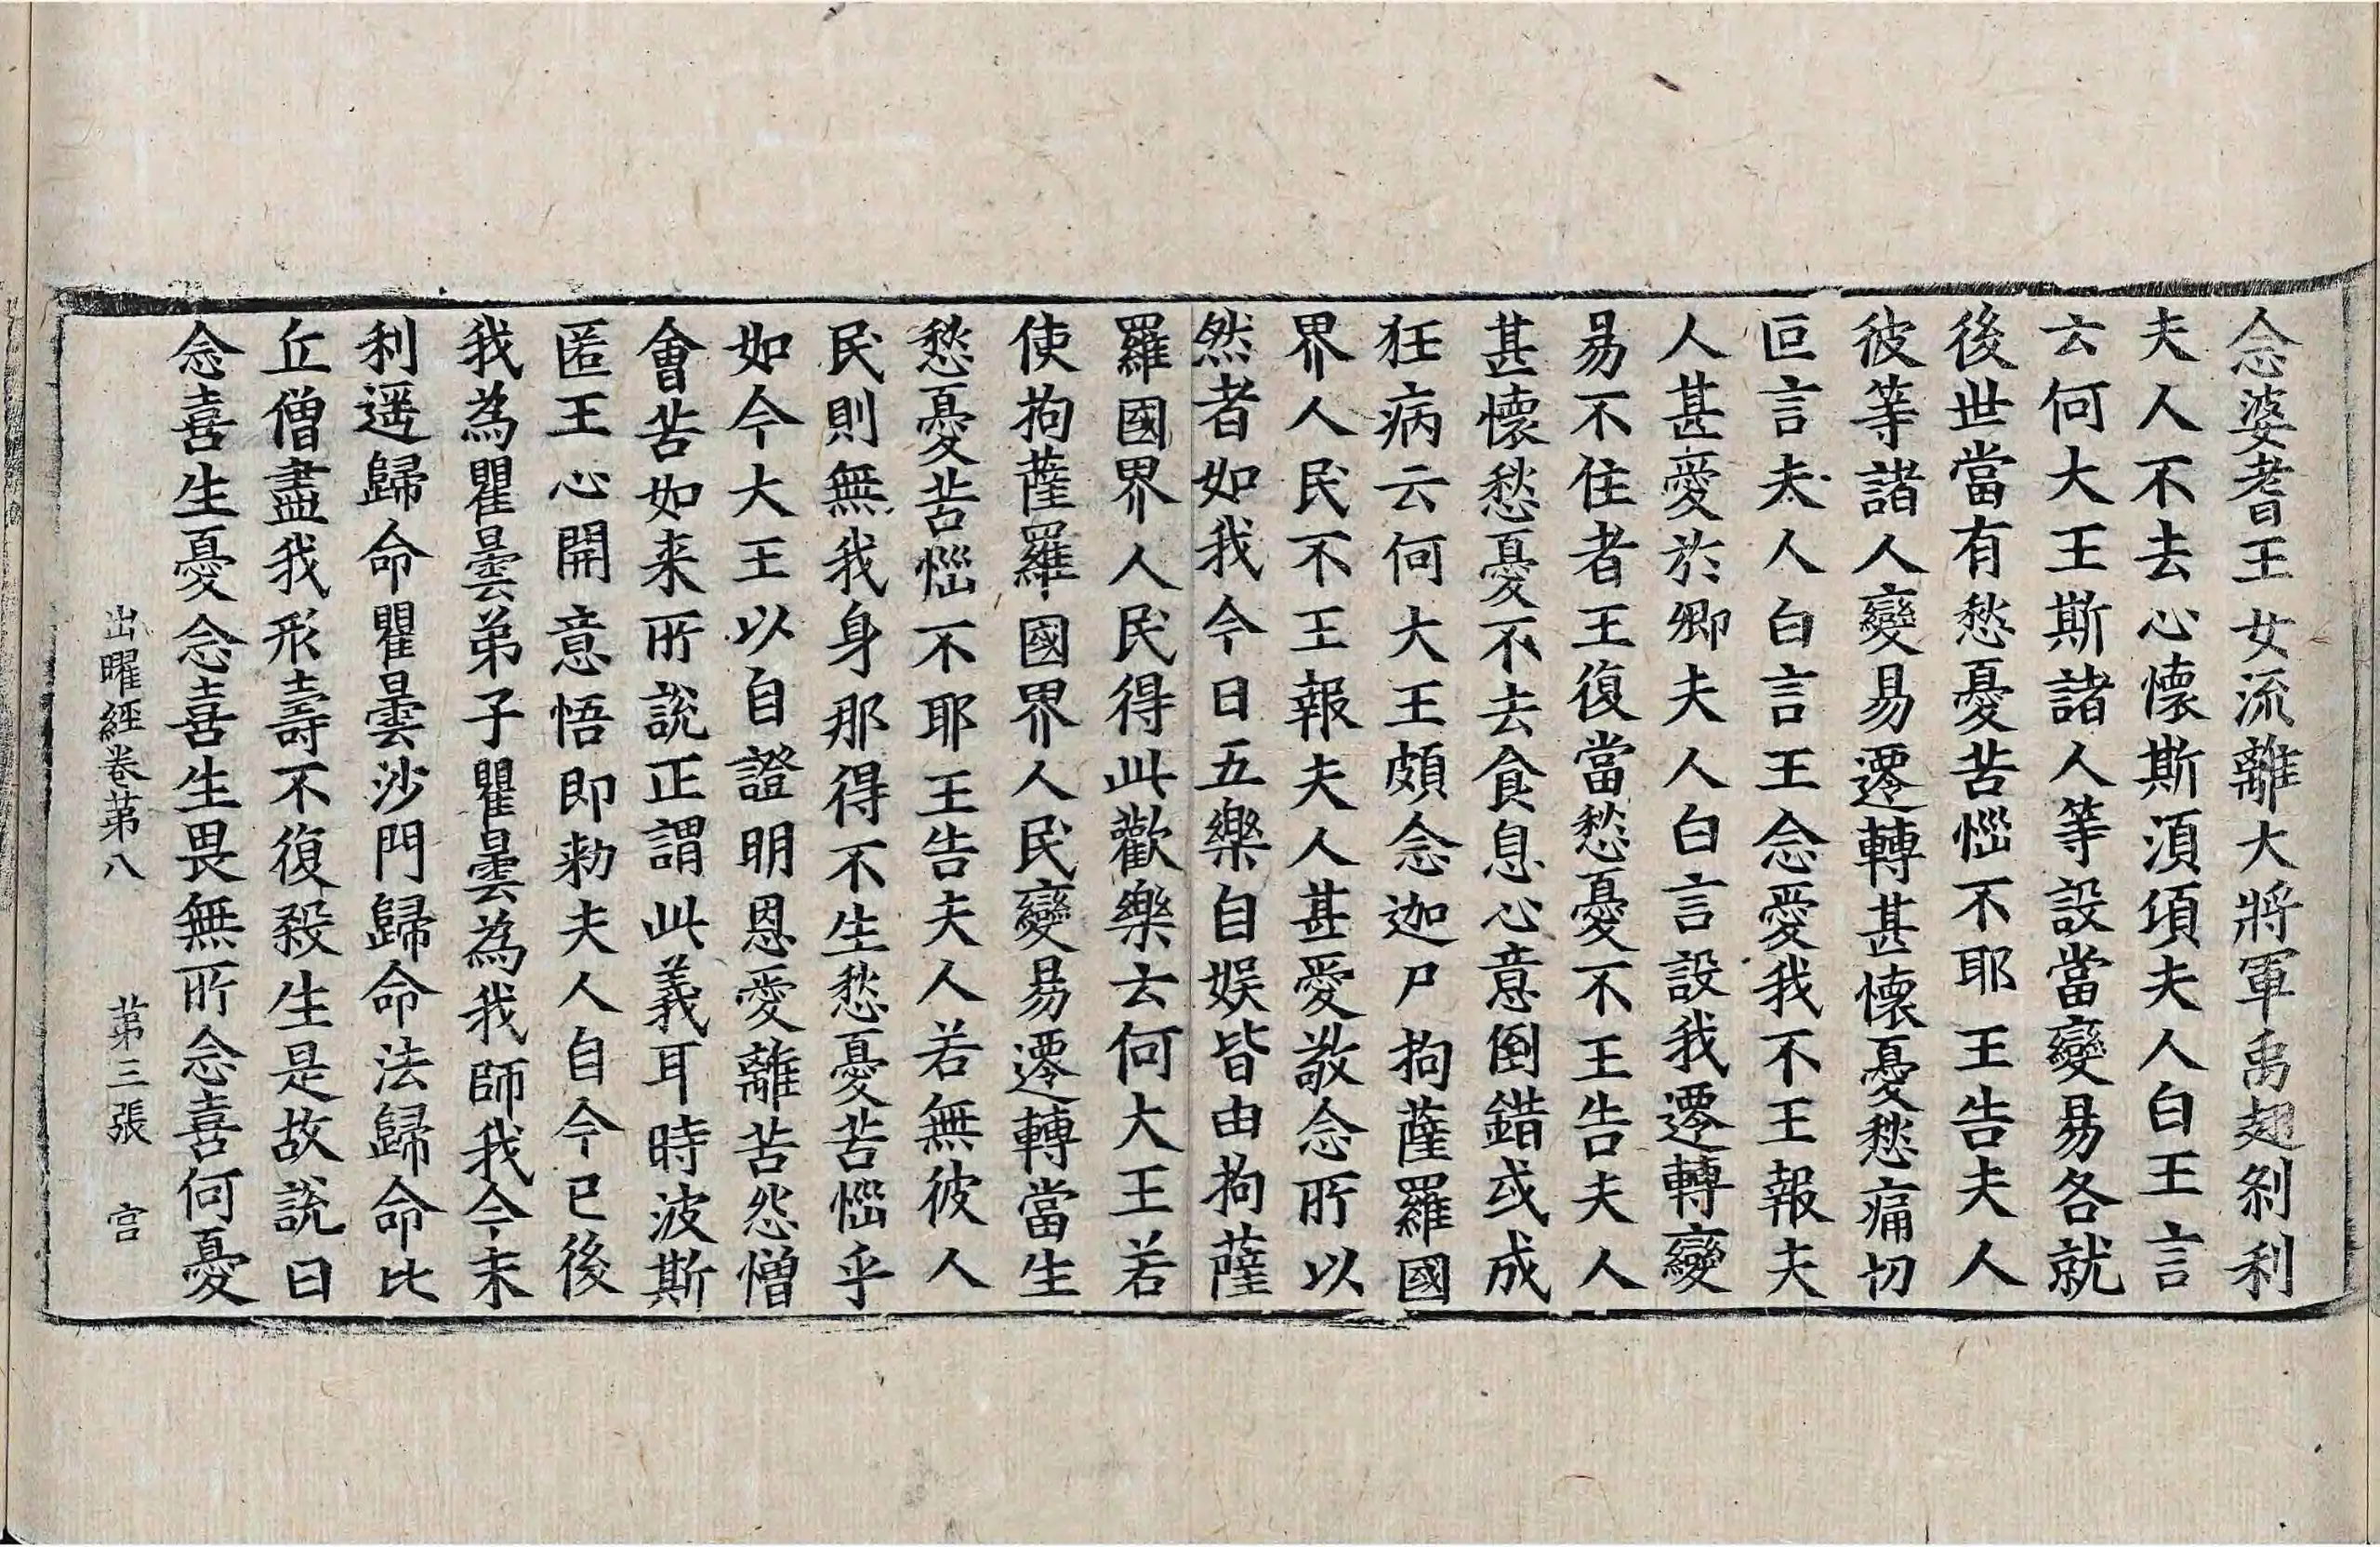 念婆耆王女流離大將軍禹翅剎利
夫人不去心懷斯湏項夫人白王言
云何大王斯諸人等設當變易各就
後世當有愁憂苦惱不耶王告夫人
彼等諸人變易遷轉甚懷憂愁痛切
叵言夫人白言王念愛我不王報夫
人甚愛於卿夫人白言設我遷轉變
易不住者王復當愁憂不王告夫人
甚懷愁憂不去食息心意倒錯或成
狂病云何大王頗念迦尸拘薩羅國
界人民不王報夫人甚愛敬念所以
然者如我今日五樂自娛皆由拘薩
羅國界人民得此歡樂云何大王若
使拘薩羅國界人民變易遷轉當生
愁憂苦惱不耶王告夫人若無彼人
民則無我身那得不生愁憂苦惱乎
如今大王以自證明恩愛離苦怨憎
會苦如来所說正謂此義耳時波斯
匿王心開意悟即勑夫人自今已後
我為瞿曇弟子瞿曇為我師我今末
利遥歸命瞿曇沙門歸命法歸命比
丘僧盡我形壽不復殺生是故說曰
念喜生憂念喜生畏無所念喜何憂
出曜經卷苐八 苐三張 宫